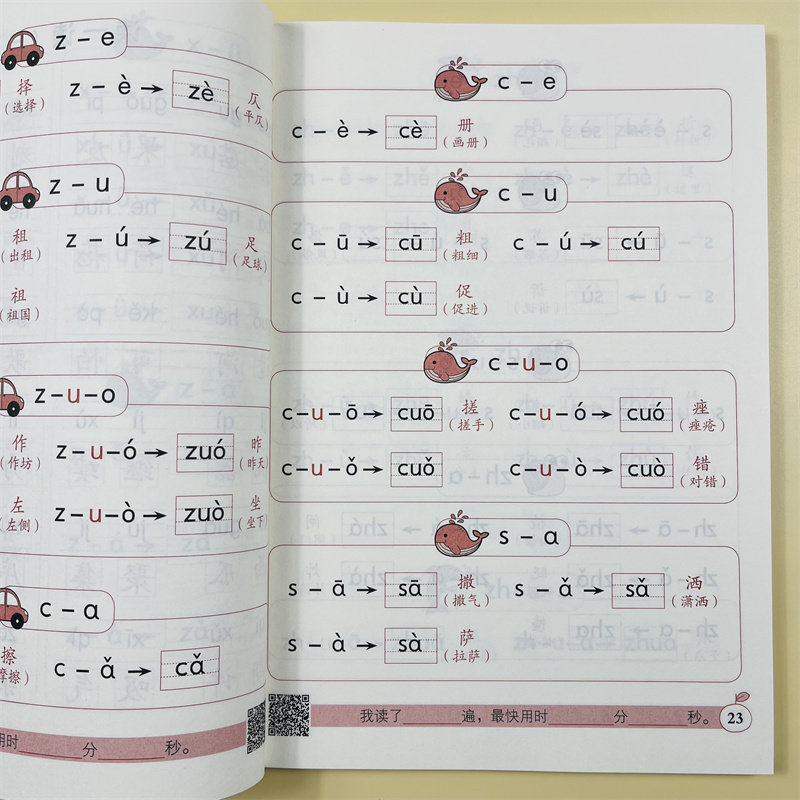 z – e
择 z – è → zè 仄
（选择） （平仄）
z – u
租 z – ú → zú 足
（出租） （足球）
祖
（祖国）
z–u–o
作 z–u–ó → zuó 昨
（作坊） （昨天）
左 z–u–ò → zuò 坐
（左侧） （坐下）
c – ɑ
擦 c – ǎ → cǎ
摩擦）
用时______分______秒。
c – e
c – è → cè 册
（画册）
c – u
c – ū → cū 粗 c – ú → cú
（粗细）
c – ù → cù 促
（促进）
c–u–o
c–u–ō → cuō 搓 c–u–ó → cuó 痤
（搓手） （痤疮）
c–u–ǒ → cuǒ c–u–ò → cuò 错
（对错）
s – ɑ
s – ā → sā 撒 s – ǎ → sǎ 洒
（撒气） （潇洒）
s – à → sà 萨
（拉萨）
我读了______遍，最快用时______分______秒。 23